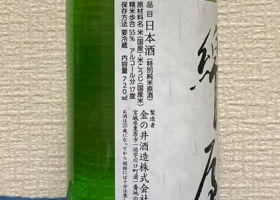 品目 日本酒(特別純米原酒)
原材料名 米(国産)、米こうじ(国産米)
精米歩合 55% アルコール分 17度
保存方法 要冷蔵 内容量 720ml
製造者
金の井酒造株式会社
宮城県栗原市一迫字川口町浦1番地の
お酒は20歳になってから
綿屋